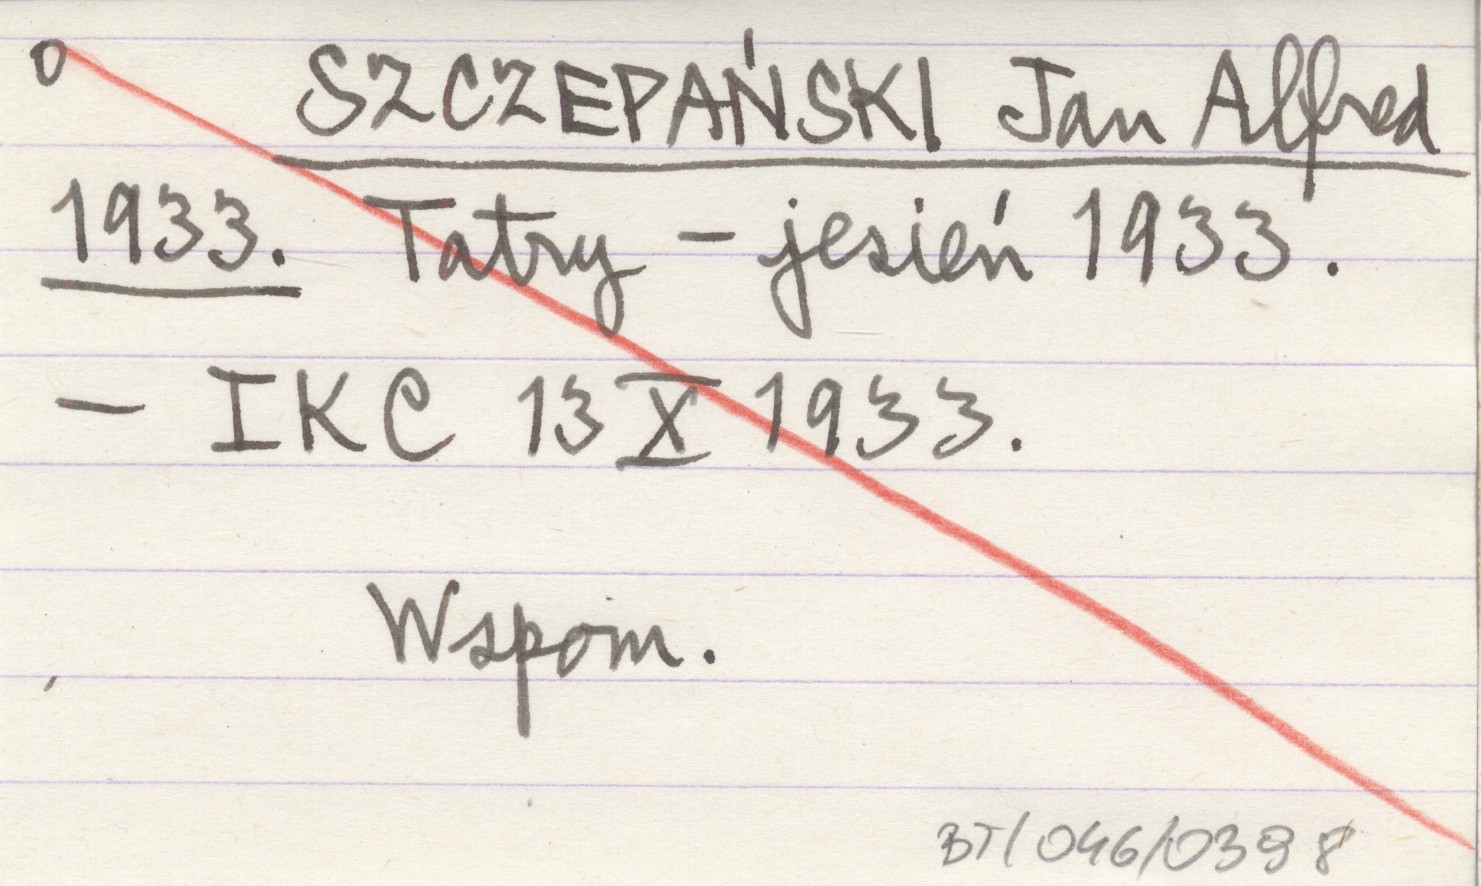 o SZCZEPAŃSKI Jan Alfred
1933. Tatry – jesień 1933.
– IKC 13 X 1933.
Wspom.
BT/046/0398